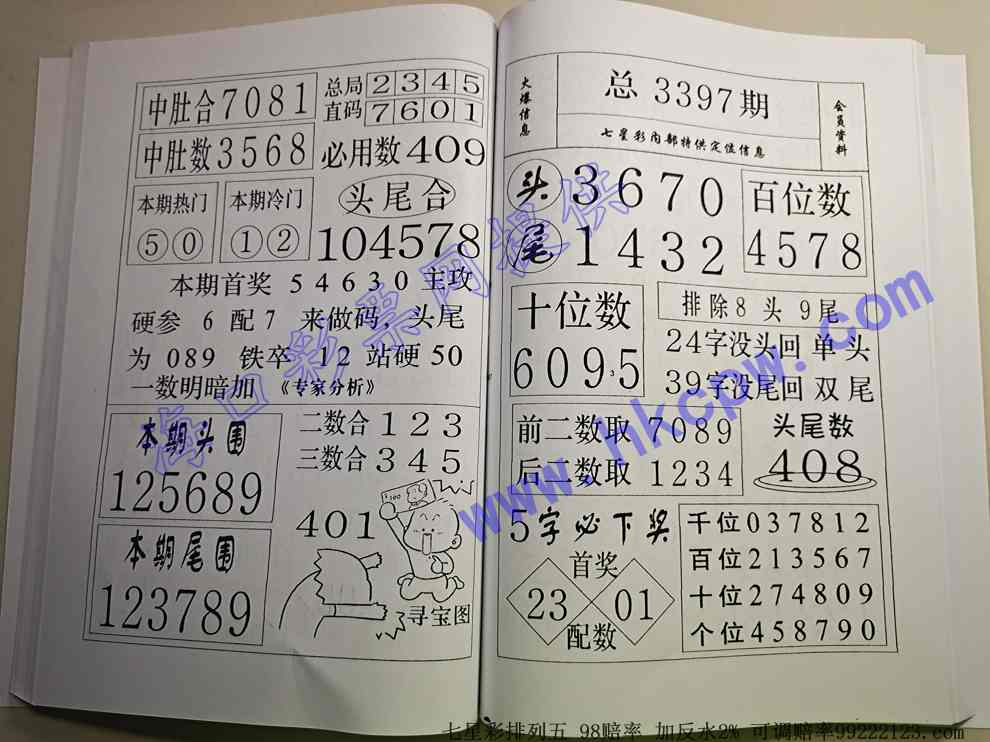 中肚合7081
中肚数3568
总局2345
直码7601
必用数409
本期热门
50
本期冷门
12
头尾合
104578
本期首奖 54630主攻
硬参 6 配7 来做码，头尾
为 089 铁卒 12 站硬 50
一数明暗加 《专家分析》
本期头围
125689
本期尾围
123789
二数合 123
三数合 345
$100
401
寻宝图
火爆信息
总 3397期
七星彩内部特供定位信息
会员资料
头 3670
尾 1432
百位数
4578
十位数
6095
3
排除8 头 9尾
24字没头回 单头
39字没尾回 双尾
前二数取 7089
后二数取 1234
头尾数
408
5字必下奖
首奖
23 01
配数
千位037812
百位213567
十位274809
个位458790
海口彩票网提供
www.hkcpw.com
七星彩排列五 98赔率 加反水2% 可调赔率99222123.com